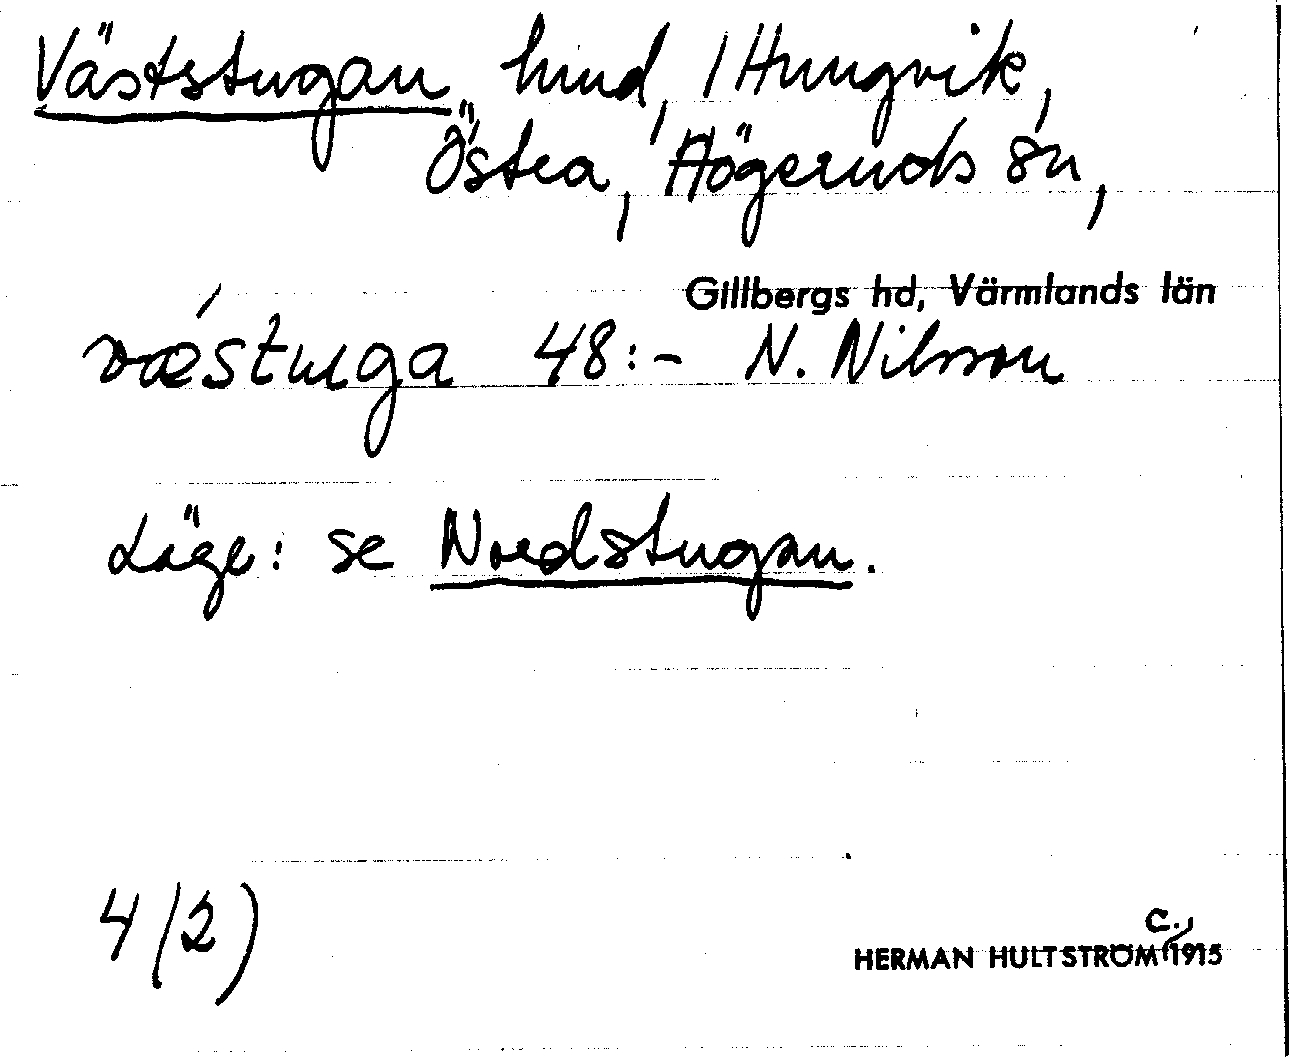 Väststugan, hmd, / Hungvik,
Östra, Högeruds sn,
Gillbergs hd, Värmlands län
væ̀stuga 48:- N. Nilsson
Läge: se Nordstugan.
4 (2)
c.
HERMAN HULTSTRÖM 1915